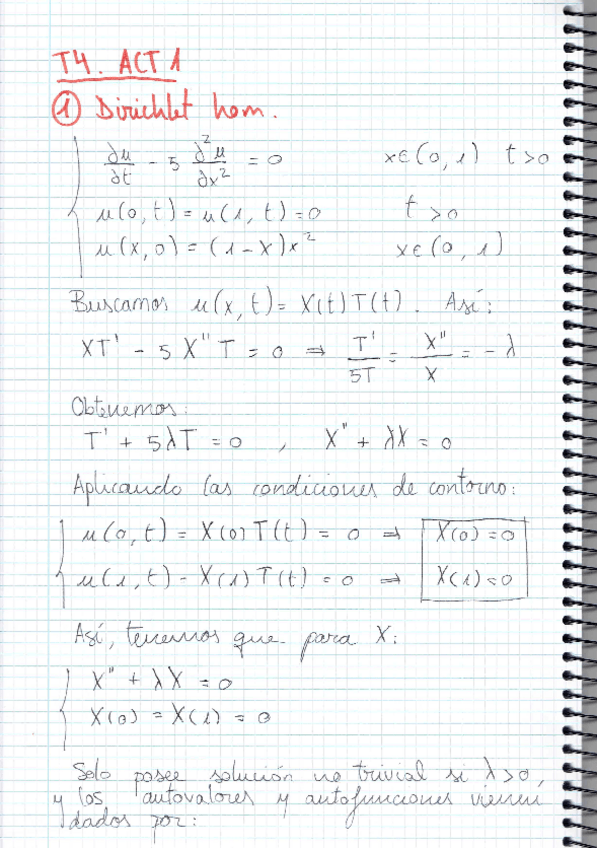 T4. ACT 1
① Dirichlet hom.
∂u/∂t - 5 ∂²u/∂x² = 0 x∈(0,1) t>0
u(0,t) = u(1,t) = 0 t>0
u(x,0) = (1-x)x² x∈(0,1)
Buscamos u(x,t) = X(t)T(t). Así:
XT' - 5X''T = 0 ⇒ T'/5T = X''/X = -λ
Obtenemos:
T' + 5λT = 0 , X'' + λX = 0
Aplicando las condiciones de contorno:
u(0,t) = X(0)T(t) = 0 ⇒ X(0) = 0
u(1,t) = X(1)T(t) = 0 ⇒ X(1) = 0
Así, tenemos que para X:
X'' + λX = 0
X(0) = X(1) = 0
Solo posee solución no trivial si λ>0,
y los autovalores y autofunciones vienen
dados por: